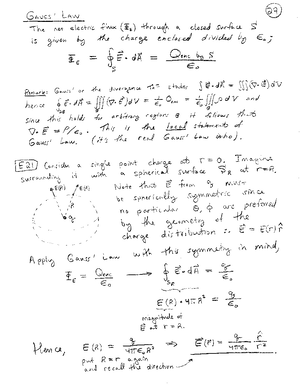 (29)
GAUSS' LAW
The net electric flux (Φ_E) through a closed surface S
is given by the charge enclosed divided by ε₀;
Φ_E = ∮_S E⃗ · dA⃗ = Q_enc by S / ε₀
Remark: Gauss' or the divergence Th^m states ∫ E⃗ · dA⃗ = ∭ (∇ · E⃗) dV
hence ∮ E⃗ · dA⃗ = ∭ (∇ · E⃗) dV = 1/ε₀ Q_enc = 1/ε₀ ∭ ρ dV and
since this holds for arbitrary regions it follows that
∇ · E⃗ = ρ/ε₀. This is the local statement of
Gauss' Law. (it's the real Gauss' Law).
E21 Consider a single point charge at r = 0. Imagine
surrounding it with a spherical surface at r = R.
Note that E⃗ from q must
be spherically symmetric since
no particular θ, φ are preferred
by the geometry of the
charge distribution ∴ E⃗ = E(r) r̂
Apply Gauss' Law with this symmetry in mind,
Φ_E = Q_enc / ε₀ → ∮ E⃗ · dA⃗ = q / ε₀
E(R) · 4πR² = q / ε₀
magnitude of
E⃗ at r = R.
Hence, E(R) = q / 4πε₀R² ⟹ E⃗(r) = q / 4πε₀ r̂ / r²
put R = r again
and recall the direction